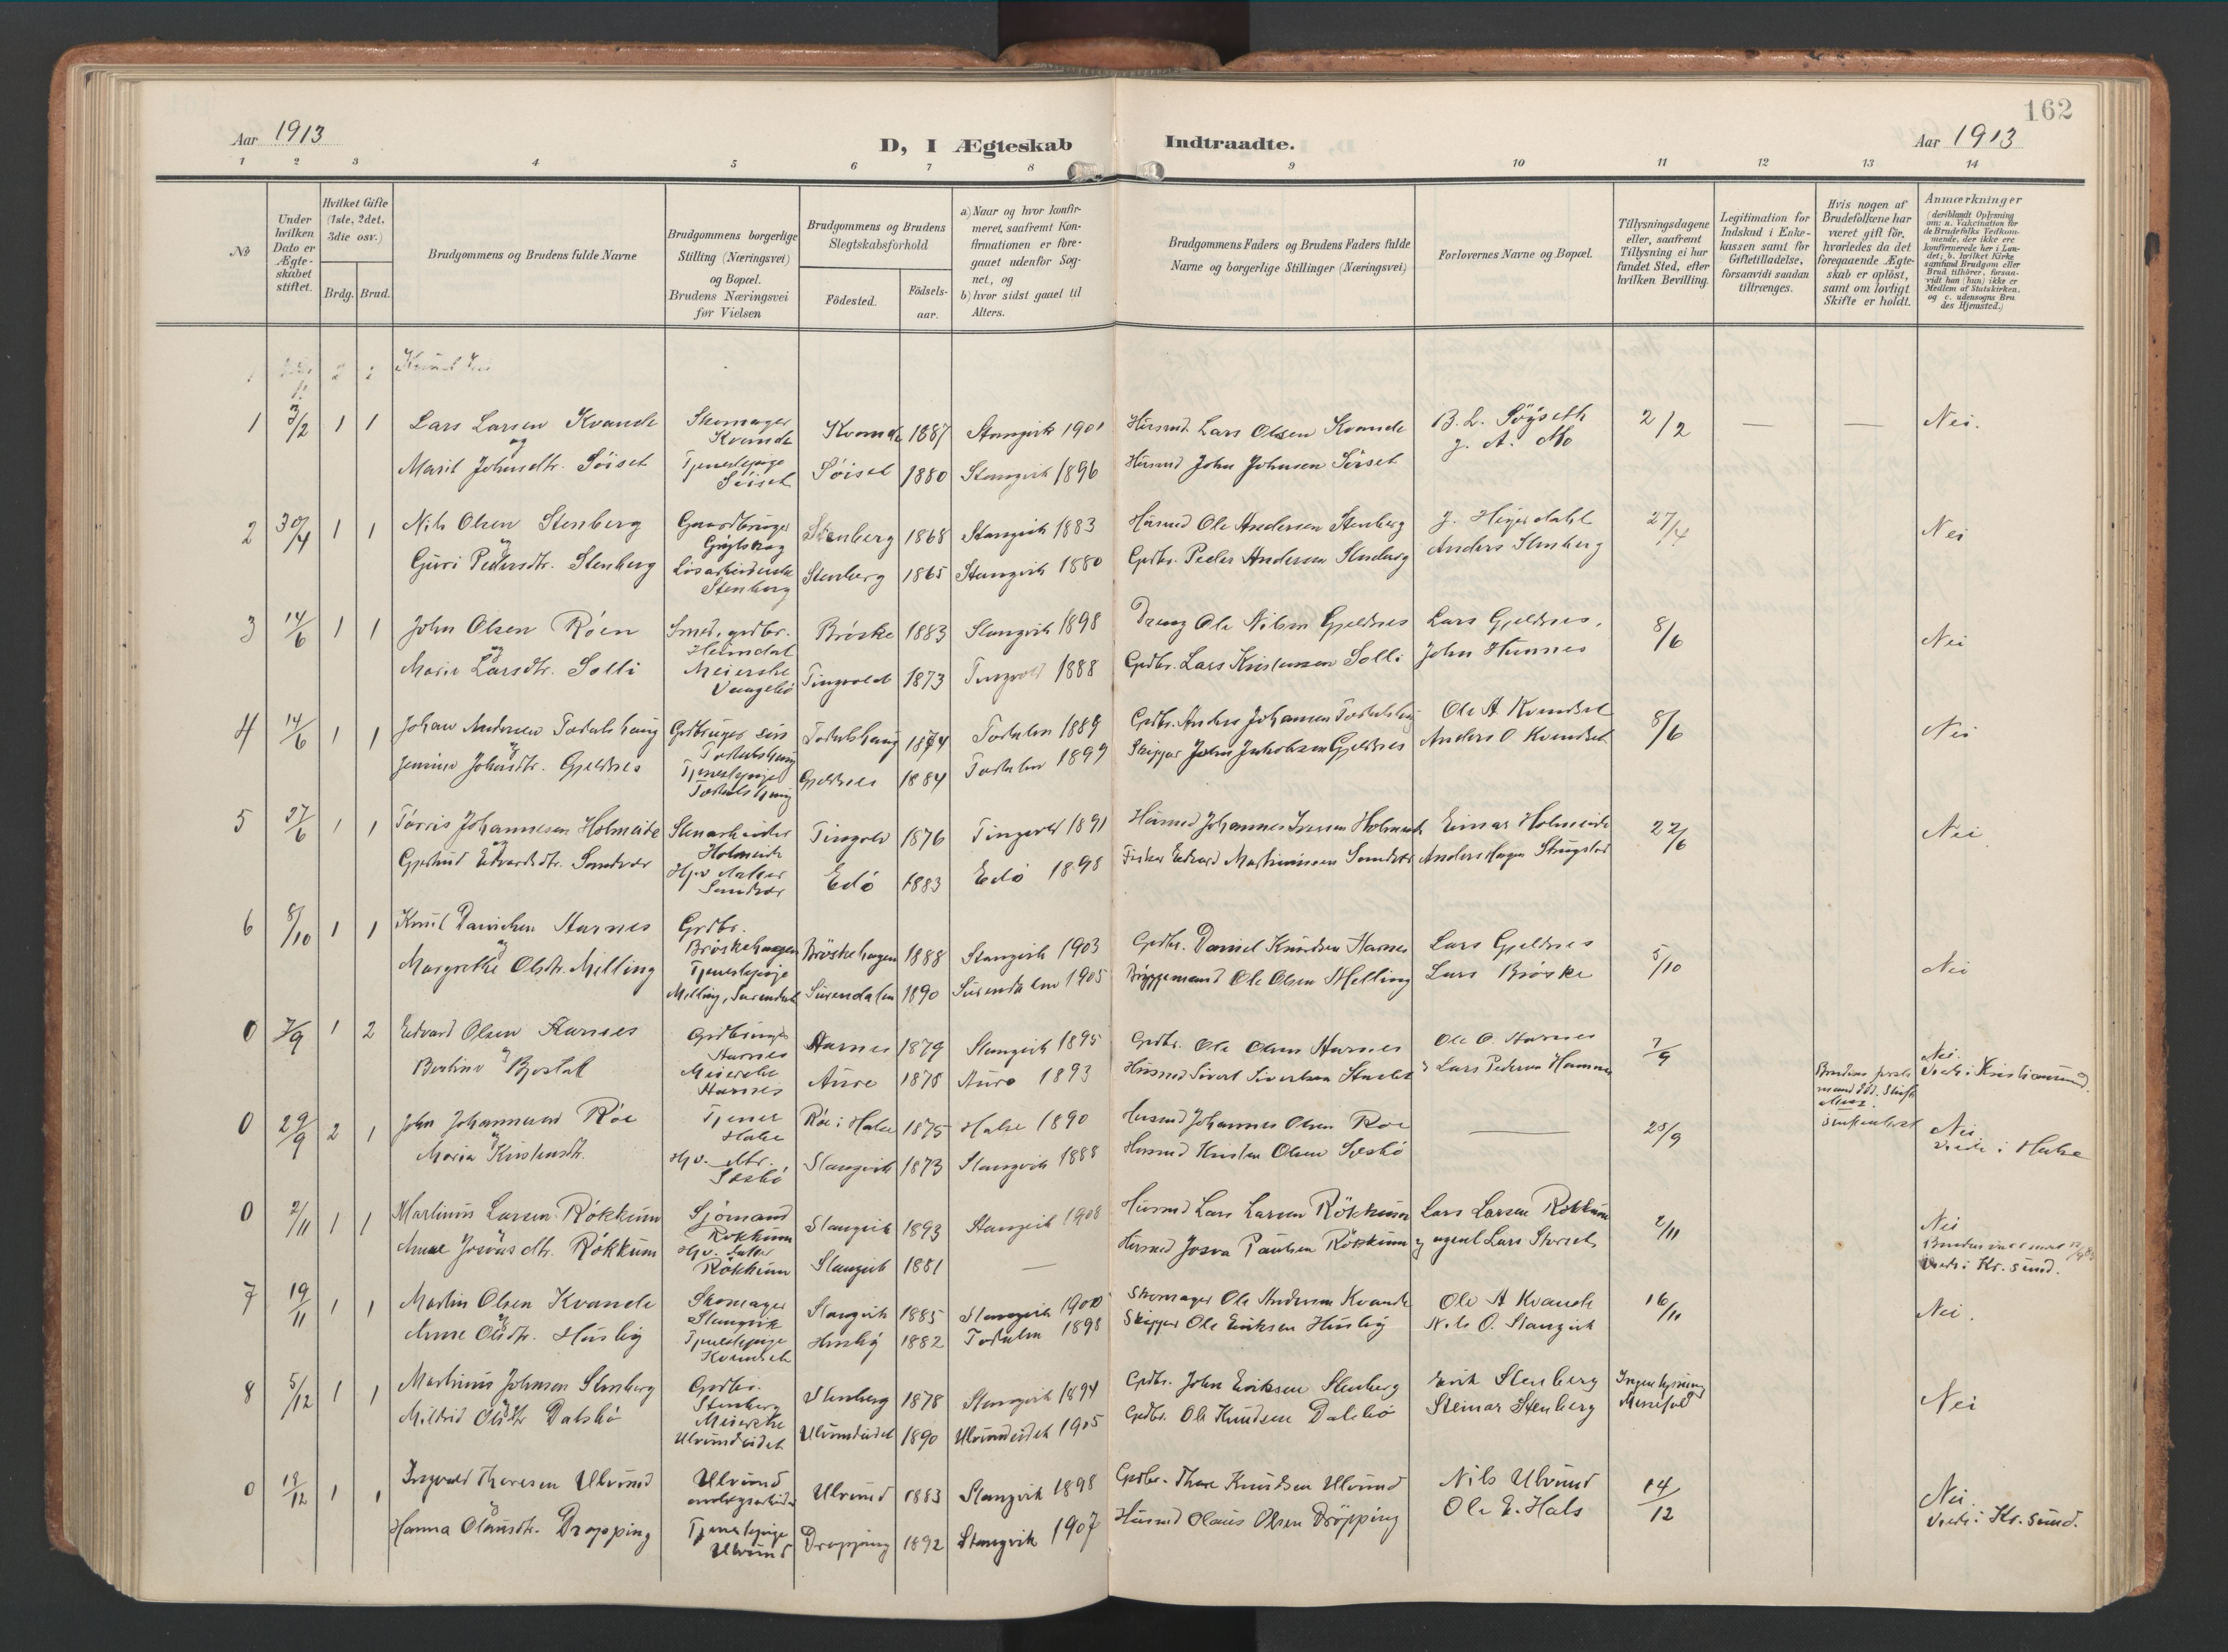 162
Aar 1913
D, I Ægteskab Indtraadte.
Aar 1913
1 2 3 4 5 6 7 8 9 10 11 12 13 14
No
Under hvilken Dato er Ægteskabet stiftet.
Hvilket Gifte (1ste, 2det, 3die osv.)
Brdg. Brud.
Brudgommens og Brudens fulde Navne
Brudgommens borgerlige Stilling (Næringsvei) og Bopæl. Brudens Næringsvei før Vielsen
Brudgommens og Brudens Slegtskabsforhold
Födested.
Födselsaar.
a) Naar og hvor konfirmeret, saafremt Konfirmationen er foregaaet udenfor Sognet, og
b) hvor sidst gaael til Alters.
Brudgommens Faders og Brudens Faders fulde Navne og borgerlige Stillinger (Næringsvei)
Forlovernes Navne og Bopæl.
Tillysningsdagene eller, saafremt Tillysning ei har fundet Sted, efter hvilken Bevilling.
Legitimation for Indskud i Enkekassen samt for Giftetilladelse, forsaavidt saadan tiltrænges.
Hvis nogen af Brudefolkene har været gift för, hvorledes da det foregaaende Ægteskab er oplöst, samt om lovligt Skifte er holdt.
Anmærkninger
(deriblandt Oplysning om: a. Vakcination for de Brudefolks Vedkommende, der ikke ere konfirmerede her i Landet; b. hvilket Kirkesamfund Brudgom eller Brud tilhörer, forsaavidt han (hun) ikke er Medlem af Statskirken, og c. udensogns Brudes Hjemsted.)
1 3/2 1 1 Lars Larsen Kvande Skomager Kvande Kvande 1887 Stangvik 1901 Husmd. Lars Olsen Kvande B. L. Söyseth 2/2 — — Nei.
og
Marit Johnsdtr. Söiset Tjenestepige Söiset Söiset 1880 Stangvik 1896 Husmd John Johnsen Söiset J. A. Mo
2 30/4 1 1 Nils Olsen Stenberg Gaardbruger Stenberg 1868 Stangvik 1883 Husmd Ole Andersen Stenberg J. Heyerdahl 27/4 Nei
og
Guri Pedersdtr. Stenberg Lösarbeiderske Stenberg Stenberg 1865 Stangvik 1880 Grdbr. Peder Andersen Stenberg Anders Stenberg
3 14/6 1 1 John Olsen Röen Smed, grdbr. Heimdal Bröske 1883 Stangvik 1898 Dreng Ole Nilsen Gjeldnes Lars Gjeldnes, 8/6 Nei
og
Marie Larsdtr. Solli Meierske Tingvold 1873 Tingvold 1888 Grdbr. Lars Kristensen Solli John Hamnes
4 14/6 1 1 Johan Andersen Todalshaug Grdbruger søn Todalshaug Todalshaug 1874 Todalen 1889 Grdbr. Anders Johansen Todalshaug Ole A Kvendset 8/6 Nei
og
Jensine Johnsdtr. Gjeldnes Tjenestepige Todalshaug Gjeldnes 1884 Todalen 1899 Skipper John Jakobsen Gjeldnes Anders O Kvendset
5 27/6 1 1 Torris Johannesen Holmeide Stenarbeider Holmeide Tingvold 1876 Tingvold 1891 Husmd Johannes Iversen Holmeide Einar Holmeide 22/6 Nei
og
Gjertrud Edvardsdtr. Sandvær Sandvær Edö 1883 Edö 1898 Fisker Edvard Martinussen Sandvær
6 8/10 1 1 Knut Danielsen Harnes Grdbr. Bröskehaugen Bröskehaugen 1888 Stangvik 1903 Grdbr. Daniel Knudsen Harnes Lars Gjeldnes 5/10 Nei
og
Margrethe Olsdtr. Melling Tjenestepige Melling, Surendal Surendalen 1890 Surendalen 1905 Ole Olsen Melling Lars Bröske
0 7/9 1 2 Edvard Olsen Harnes Grdbruger Harnes Harnes 1879 Stangvik 1895 Grdbr. Ole Olsen Harnes Ole O. Harnes 7/9 Nei.
og
Berline Meierske Harnes Aure 1878 Aure 1893 Husmd Sivert Sivertsen Lars Pedersen Viede i Kristiansund.
0 29/9 2 1 John Johannesen Röe Tjener Halse Röe i Halse 1875 Halse 1890 Husmd Johannes Olsen Roe — 28/9 Nei
og
Maria Kristensdtr. Stangvik 1873 Stangvik 1888 Husmd Kristen Olsen viede i Halse
0 2/11 1 1 Martinus Larsen Rökkum Sjömand Rökkum Stangvik 1893 Stangvik 1908 Husmd Lars Larsen Rökkum Lars Larsen Rökkum 2/11 Nei
og
Anne Josvasdtr. Rökkum Rökkum Stangvik 1881 — Husmd Josva Paulsen Rökkum agent Lars Viede i Kr.sund.
7 19/11 1 1 Martin Olsen Kvande Skomager Stangvik Stangvik 1885 Stangvik 1900 Skomager Ole Andersen Kvande Ole A Kvande 16/11 Nei.
og
Anne Olsdtr. Husby Tjenestepige Husby 1882 Todalen 1898 Skipper Ole Eriksen Husby Nils O. Stangvik
8 5/12 1 1 Martinus Johnsen Stenberg Grdbr. Stenberg Stenberg 1878 Stangvik 1894 Grdbr. John Eriksen Stenberg Erik Stenberg Ingen lysning Nei
og
Mildrid Olsdtr Dalsbö Meierske Ulvundeidet Ulvundeidet 1890 Ulvundeidet 1905 Grdbr. Ole Knudsen Dalsbö Steinar Stenberg
0 18/12 1 1 Ingvald Thoresen Ulvund Ulvund Ulvund 1883 Stangvik 1898 Grdbr. Thore Knudsen Ulvund Nils Ulvund 14/12 Nei.
og
Hanna Olausdtr. Dröpping Tjenestepige Ulvund Dröpping 1892 Stangvik 1907 Husmd Olaus Olsen Dröpping Ole E. Hals Viede i Kr.sund.